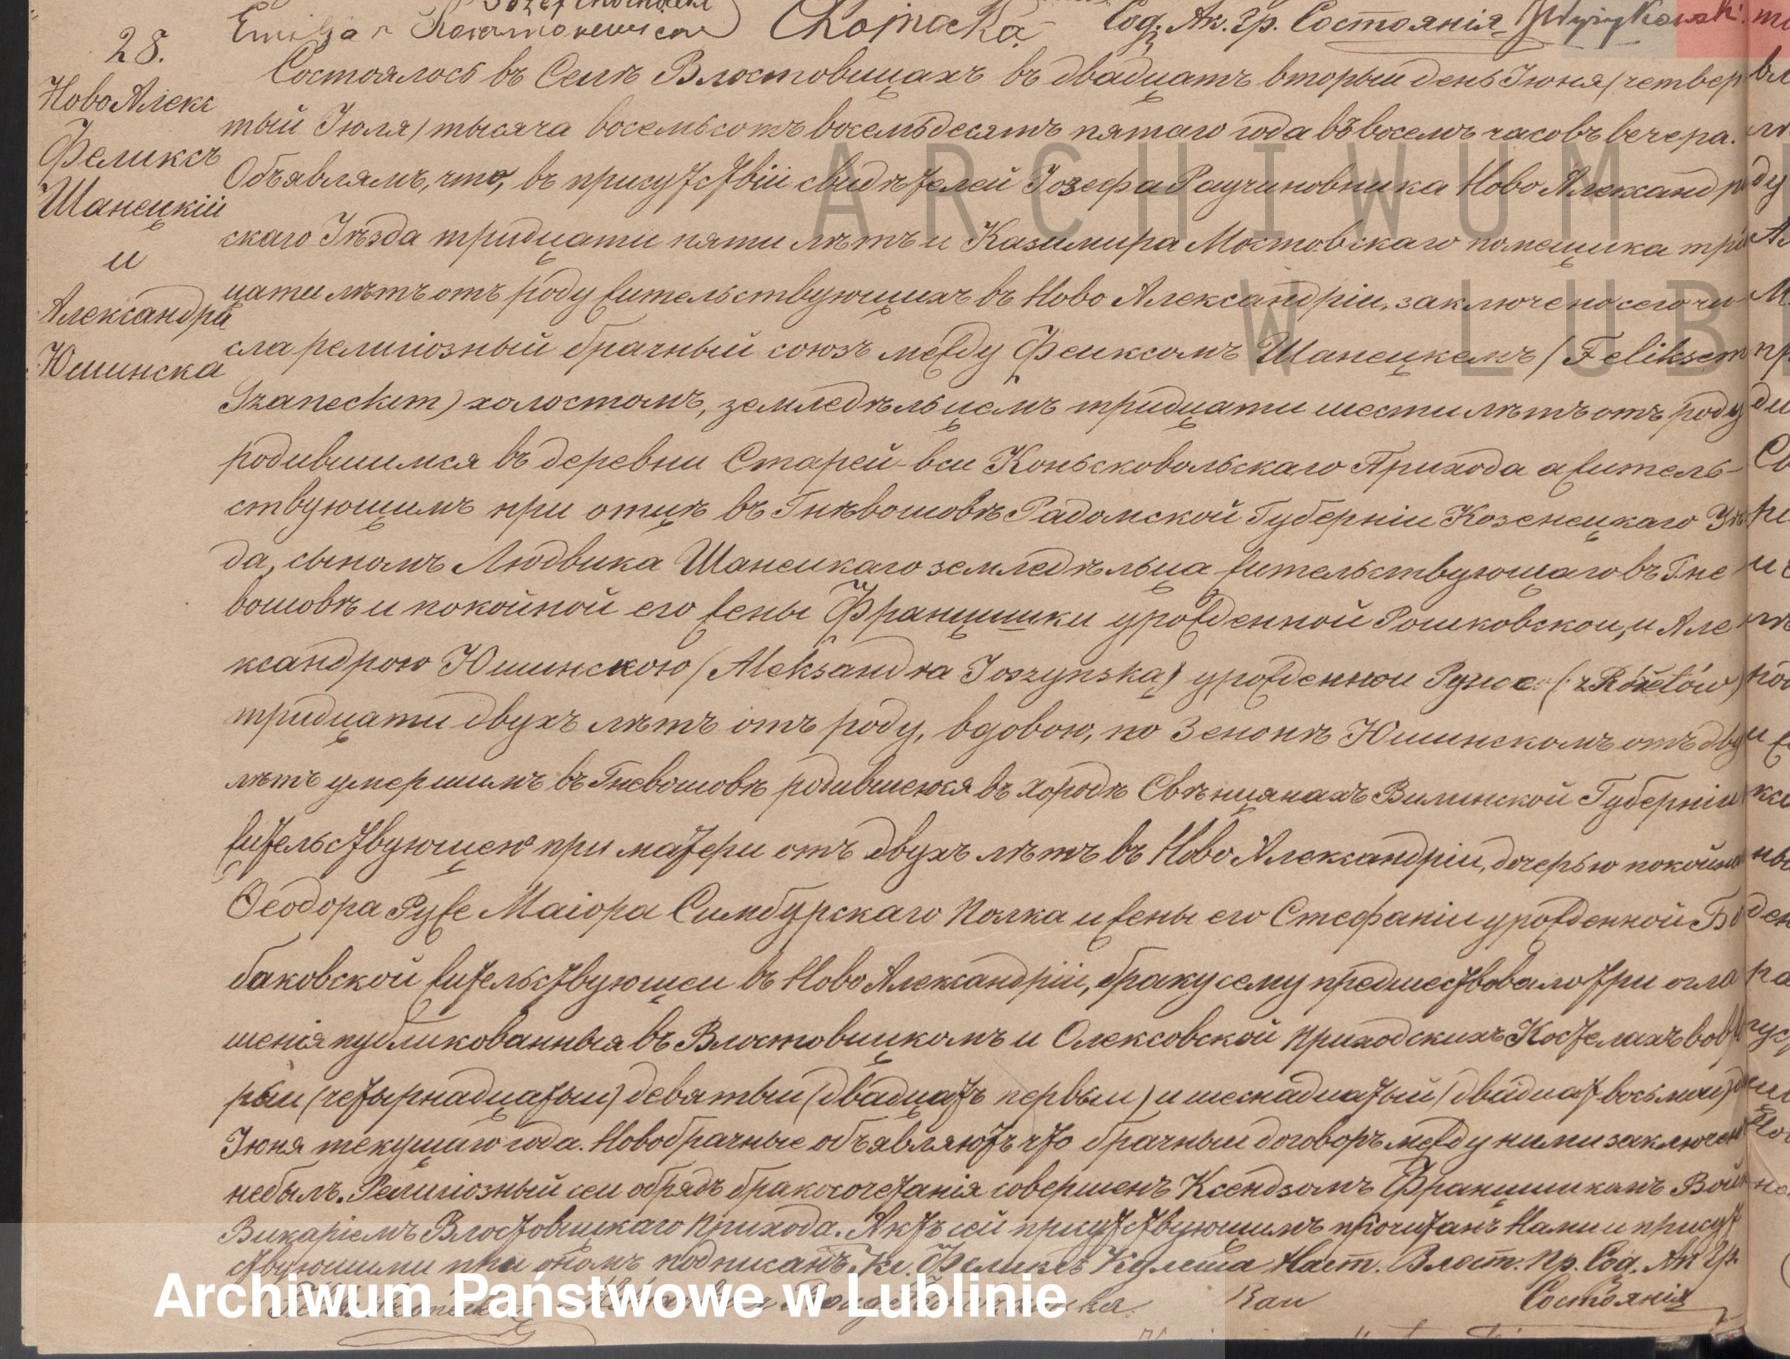 Emilja
Chojnacka
Сод. Ак. Гр. Состоянія
28.
НовоАлекс
Феликсъ
Шанецкій
и
Александра
Юшинска
Состоялось въ Селѣ Влостовицахъ въ двадцать вторый день Іюня (четвер
тый Іюля) тысяча восемьсотъ восемьдесятъ пятаго года въ восемъ часовъ вечера.
Объявлямъ, что, въ присутствіи свидѣтелей Іозефа чиновника Ново Александрій
скаго Уѣзда тридцати пяти лѣтъ и Казимира Мостовскаго помещика трид
цати лѣтъ отъ роду жительствующихъ въ Ново Александріи, заключено сего чи
сла религіозный брачный союзъ между Феиксомъ Шанецкемъ (Feliksem
Szaneckim) холостомъ, земледѣльцемъ тридцати шести лѣтъ отъ роду
родившимся въ деревни Старей-вси Коньсковольскаго Прихода а житель-
ствующимъ при отцѣ въ Гнѣвошовѣ Радомской Губерніи Козенецкаго Уѣз
да, сыномъ Людвика Шанецкаго земледѣльца жительствующаго въ Гне
вошовѣ и покойной его жены Францишки урожденной Рошковской, и Але
ксандрою Юшинскою (Aleksandra Joszyńska) урожденной (z Różetów)
тридцати двухъ лѣтъ отъ роду, вдовою, по Зенонѣ Юшинскомъ отъ двухъ
лѣтъ умершимъ въ Гневошовѣ родившеюся въ городѣ Свѣнцянахъ Виленской Губерніи
жительствующей при матери отъ двухъ лѣтъ въ Ново Александріи, дочерью покойнаго
Ѳеодора Руже Маіора Симбурскаго Полка и жены его Стефаніи урожденной Бо
баковской жительствующей въ Ново Александріи, браку сему предшествовало три огла
шенія публикованныя въ Влостовицкомъ и Олексовской Приходскихъ Костелахъ вовто
рый (четырнадцатый) девятый (двадцать первый) и шеснадцатый (двадцат восьмый)
Іюня текущаго года. Новобрачные объявляютъ что брачный договоръ между ними заключен
небылъ. Религіозный сей обрядъ бракосочетанія совершенъ Ксендзомъ Францишкомъ
Викаріемъ Влостовицкаго Прихода. Актъ сей присутствующимъ прочитанъ Нами и присут
ствующими при ономъ подписанъ. Кс. Феликсъ Наст. Власт. Пр. Сод. Ак Гр.
Состоянія
ARCHIWUM
W LUB
Archiwum Państwowe w Lublinie